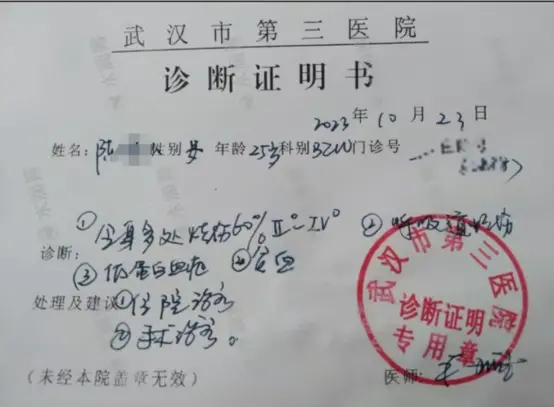 武汉市第三医院
诊断证明书
2023年10月23日
姓名：陈 性别 女 年龄 25岁 科别 门诊号
①全身多处烧伤60% II°-IV° ②呼吸道烧伤
诊断：
③低蛋白血症 ④贫血
处理及建议 ①住院治疗
②手术治疗。
武汉市第三医院
诊断证明
专用章
(未经本院盖章无效) 医师：